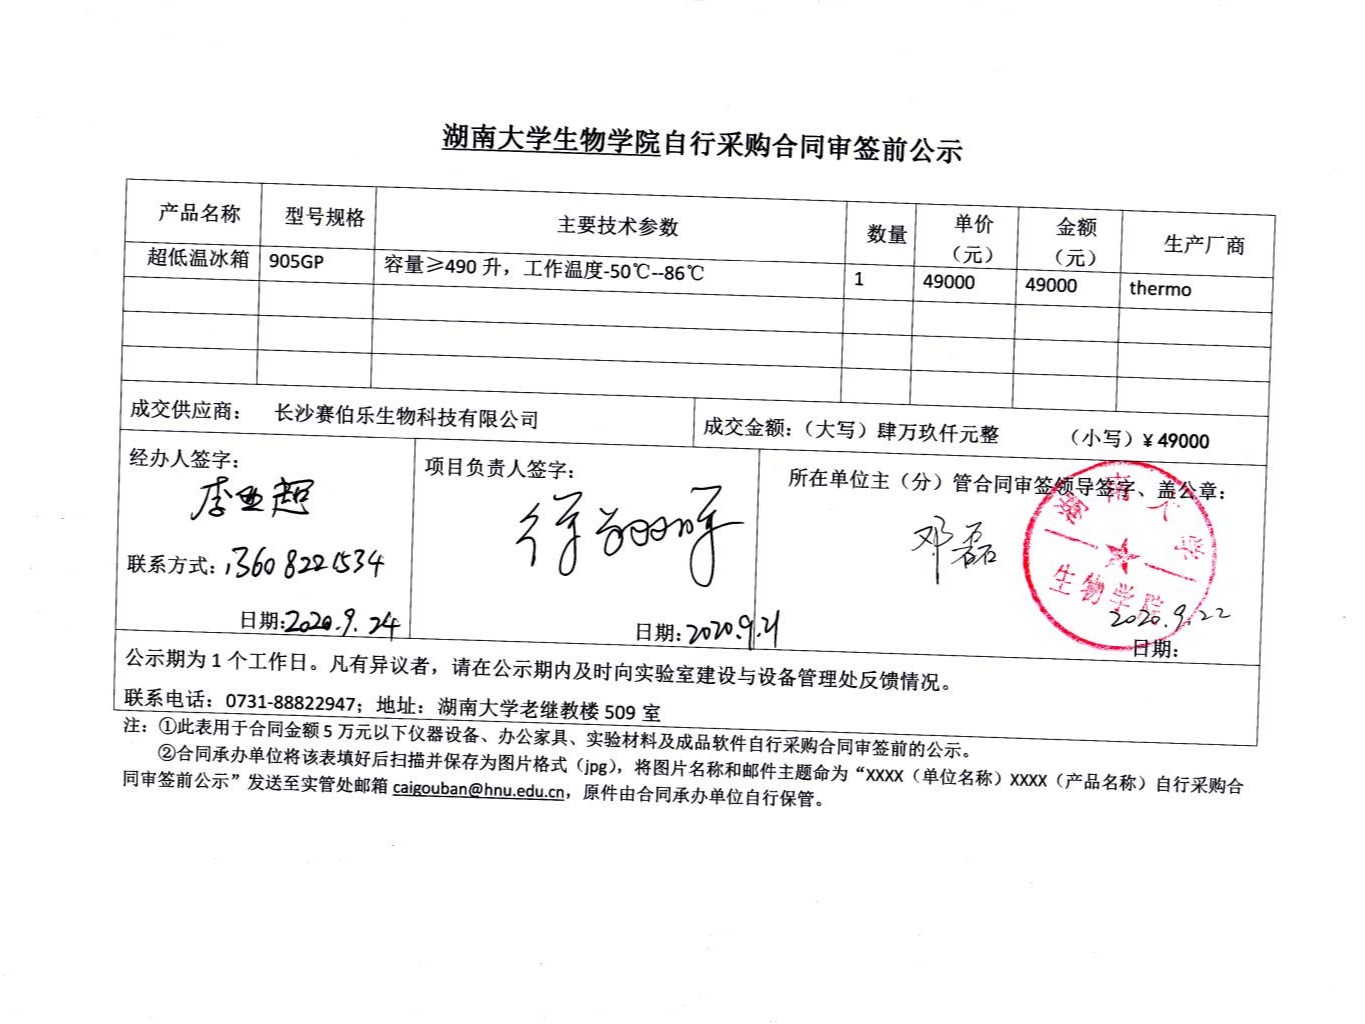 湖南大学生物学院自行采购合同审签前公示
产品名称 型号规格 主要技术参数 数量 单价（元） 金额（元） 生产厂商
超低温冰箱 905GP 容量≥490 升，工作温度-50℃--86℃ 1 49000 49000 thermo
成交供应商： 长沙赛伯乐生物科技有限公司 成交金额：（大写）肆万玖仟元整 （小写）¥ 49000
经办人签字： 项目负责人签字： 所在单位主（分）管合同审签领导签字、盖公章：
李亚超 邓磊
湖南大学
生物学院
联系方式：13608221534
日期：2020.9.24 日期：2020.9.21 2020.9.22
日期：
公示期为 1 个工作日。凡有异议者，请在公示期内及时向实验室建设与设备管理处反馈情况。
联系电话：0731-88822947；地址：湖南大学老继教楼 509 室
注：①此表用于合同金额 5 万元以下仪器设备、办公家具、实验材料及成品软件自行采购合同审签前的公示。
②合同承办单位将该表填好后扫描并保存为图片格式（jpg），将图片名称和邮件主题命为“XXXX（单位名称）XXXX（产品名称）自行采购合
同审签前公示”发送至实管处邮箱 caigouban@hnu.edu.cn，原件由合同承办单位自行保管。